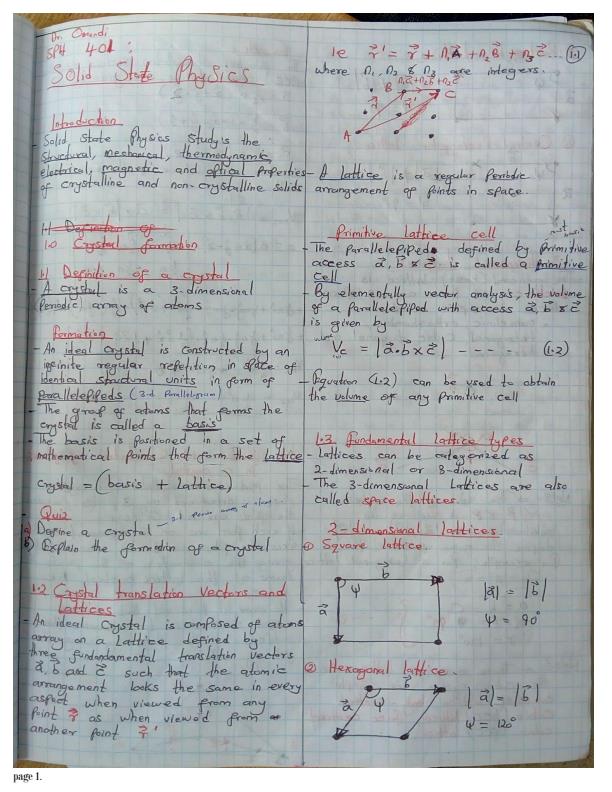 Dr. Omondi
SPH 401:
Solid State Physics
Introduction
- Solid State Physics study is the
structural, mechanical, thermodynamic,
electrical, magnetic and optical properties
of crystalline and non-crystalline solids
1.1 Definition of
1.0 Crystal formation
1.1 Definition of a crystal
- A crystal is a 3-dimensional
Periodic array of atoms
Formation
- An ideal crystal is constructed by an
infinite regular repetition in space of
identical structural units in form of
parallelepipeds (3-d Parallelogram)
- The group of atoms that forms the
crystal is called a basis
- The basis is positioned in a set of
mathematical points that form the lattice
crystal = (basis + lattice)
- Quiz
a) Define a crystal
b) Explain the formation of a crystal
1.2 Crystal translation vectors and
lattices
- An ideal Crystal is composed of atoms
array on a Lattice defined by
three fundandamental translation vectors
a⃗, b⃗ and c⃗ such that the atomic
arrangement looks the same in every
aspect when viewed from any
Point r⃗ as when viewed from
another point r⃗'
ie r⃗' = r⃗ + n₁A⃗ + n₂B⃗ + n₃C⃗ ... (1.1)
where n₁, n₂ & n₃ are integers.
n₁a⃗ + n₂b⃗ + n₃c⃗
B C
r⃗ r⃗'
A
- A lattice is a regular Periodic
arrangement of points in space.
Primitive lattice cell
- The parallelepiped defined by primitive
access a⃗, b⃗ & c⃗ is called a primitive
cell
- By elementally vector analysis, the volume
of a parallelepiped with access a⃗, b⃗ & c⃗
is given by
Vc = |a⃗•b⃗×c⃗| - - - - (1.2)
- Equation (1.2) can be used to obtain
the volume of any primitive cell
1.3 Fundamental lattice types
- Lattices can be categorized as
2-dimensional or 3-dimensional
- The 3-dimensional Lattices are also
called space lattices.
2-dimensional lattices
① Square lattice.
b⃗
a⃗ ψ
|a⃗| = |b⃗|
ψ = 90°
② Hexagonal lattice.
b⃗
a⃗ ψ
|a⃗| = |b⃗|
ψ = 120°
page 1.